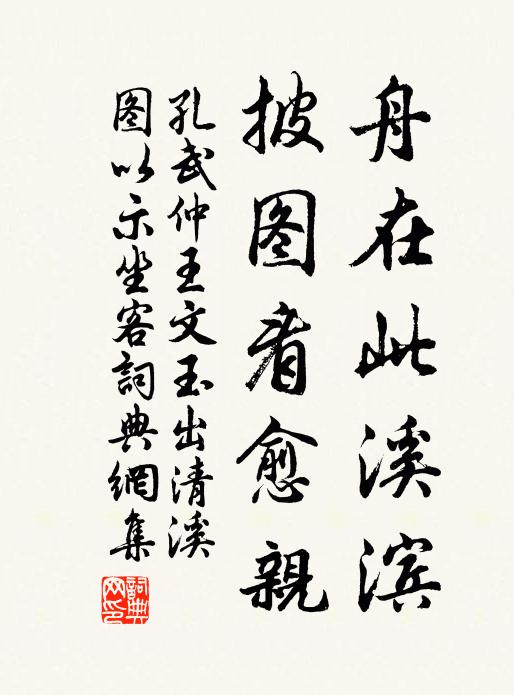 舟在此溪滨
披图看愈親
孔武仲王文玉出清溪
图以示坐客詞典網集
詞典网印